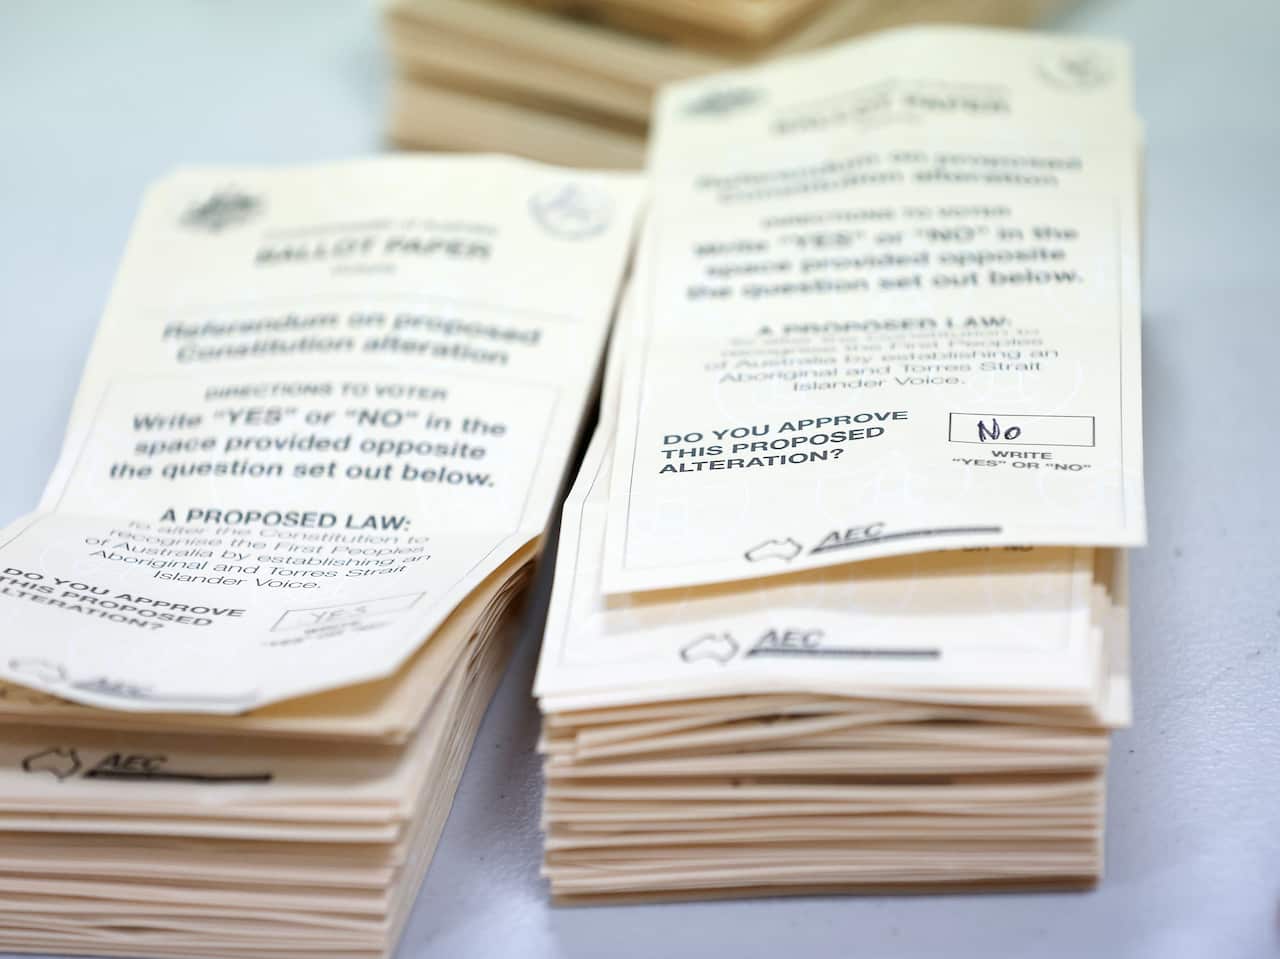 BALLOT PAPER
Referendum on proposed
Constitution alteration
DIRECTIONS TO VOTER
Write "YES" or "NO" in the
space provided opposite
the question set out below.
A PROPOSED LAW:
To alter the Constitution to
recognise the First Peoples
of Australia by establishing an
Aboriginal and Torres Strait
Islander Voice.
DO YOU APPROVE
THIS PROPOSED
ALTERATION?
YES
WRITE
"YES" OR "NO"
AEC
AEC
BALLOT PAPER
Referendum on proposed
Constitution alteration
DIRECTIONS TO VOTER
Write "YES" or "NO" in the
space provided opposite
the question set out below.
A PROPOSED LAW:
To alter the Constitution to
recognise the First Peoples
of Australia by establishing an
Aboriginal and Torres Strait
Islander Voice.
DO YOU APPROVE
THIS PROPOSED
ALTERATION?
No
WRITE
"YES" OR "NO"
AEC
AEC